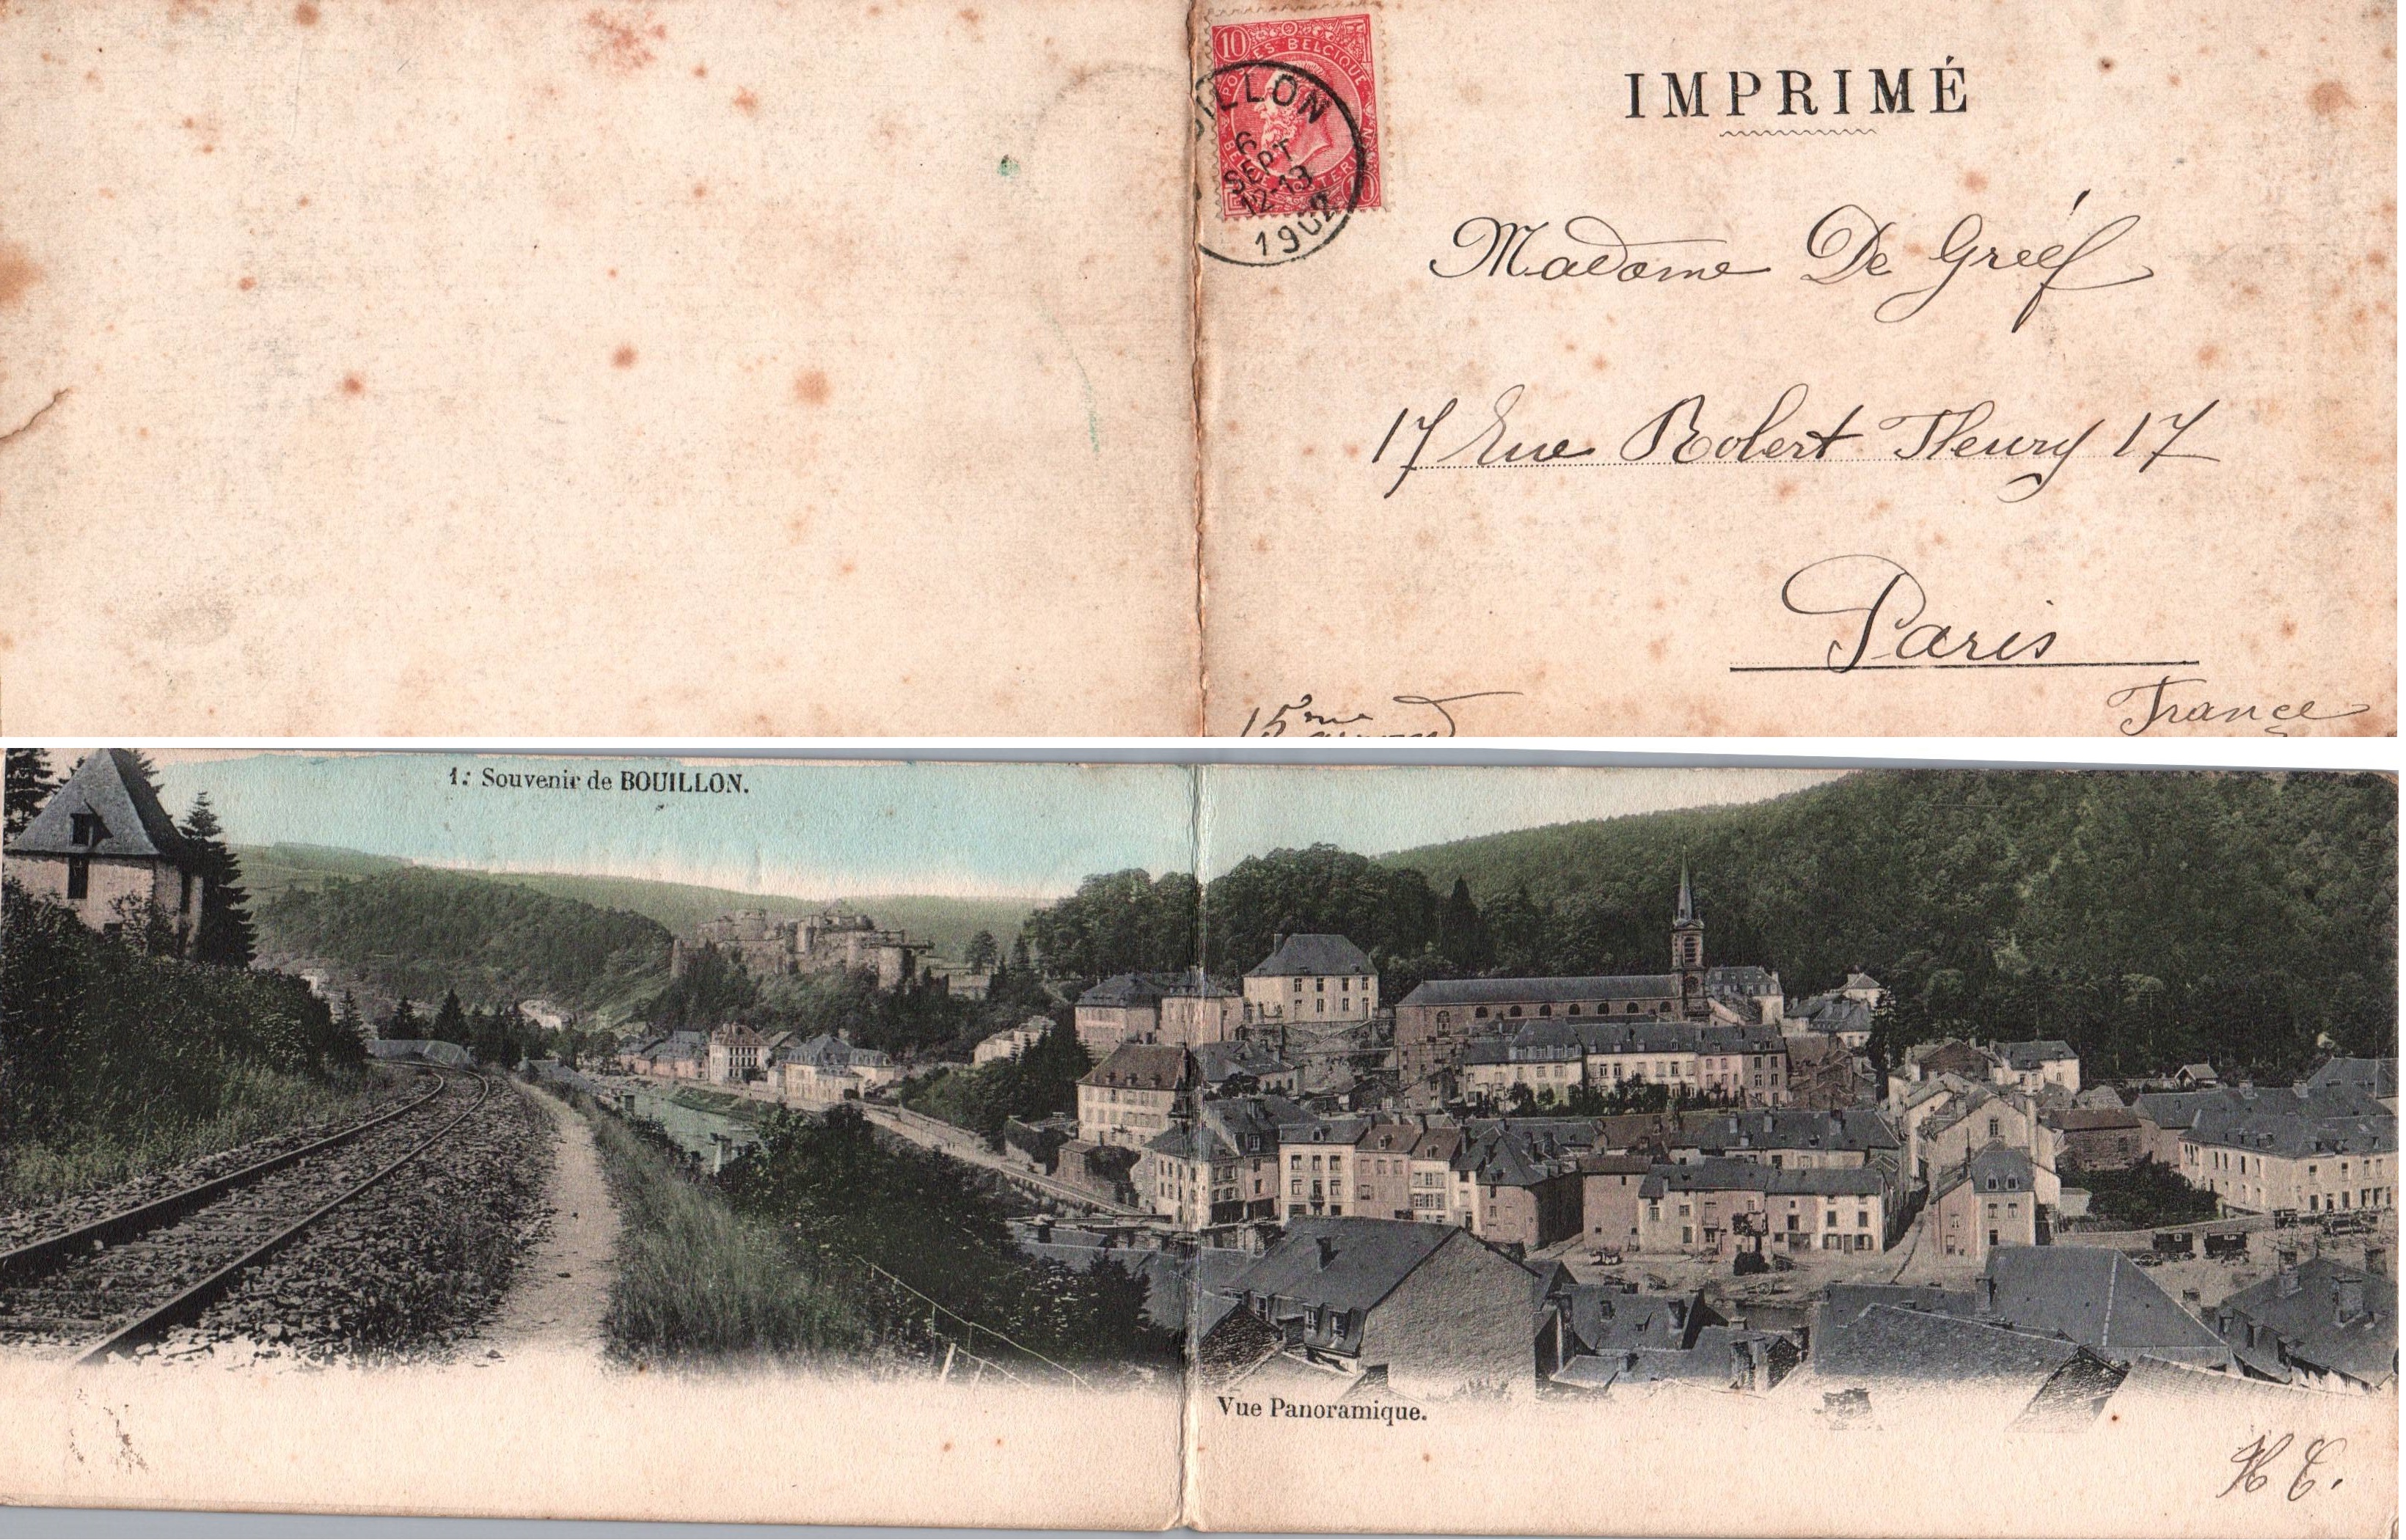 10
POSTES BELGIQUE
BELGIE POSTERIJEN
BOUILLON
6
SEPT
12-13
1902
IMPRIMÉ
Madame De Greéf
17 Rue Robert Fleury 17
Paris
France
15me
1: Souvenir de BOUILLON.
Vue Panoramique.